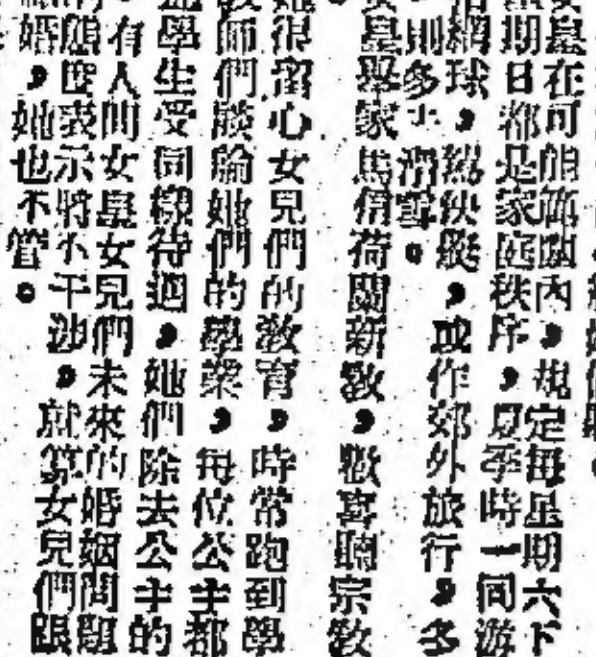 皇在可能範圍內，規定每星期六下
期日都是家庭秩序，夏季時一同游
網球，駕快艇，或作郊外旅行，多
則多　滑雪。
皇舉家篤信荷蘭新教，歡喜聽宗教
她很留心女兒們的教育，時常跑到學
師們談論她們的學業，每位公主都
學生受同樣待遇，她們除去公主的
有人問女皇女兒們未來的婚姻問題
態度表示將不干涉，就算女兒們跟
婚，她也不管。